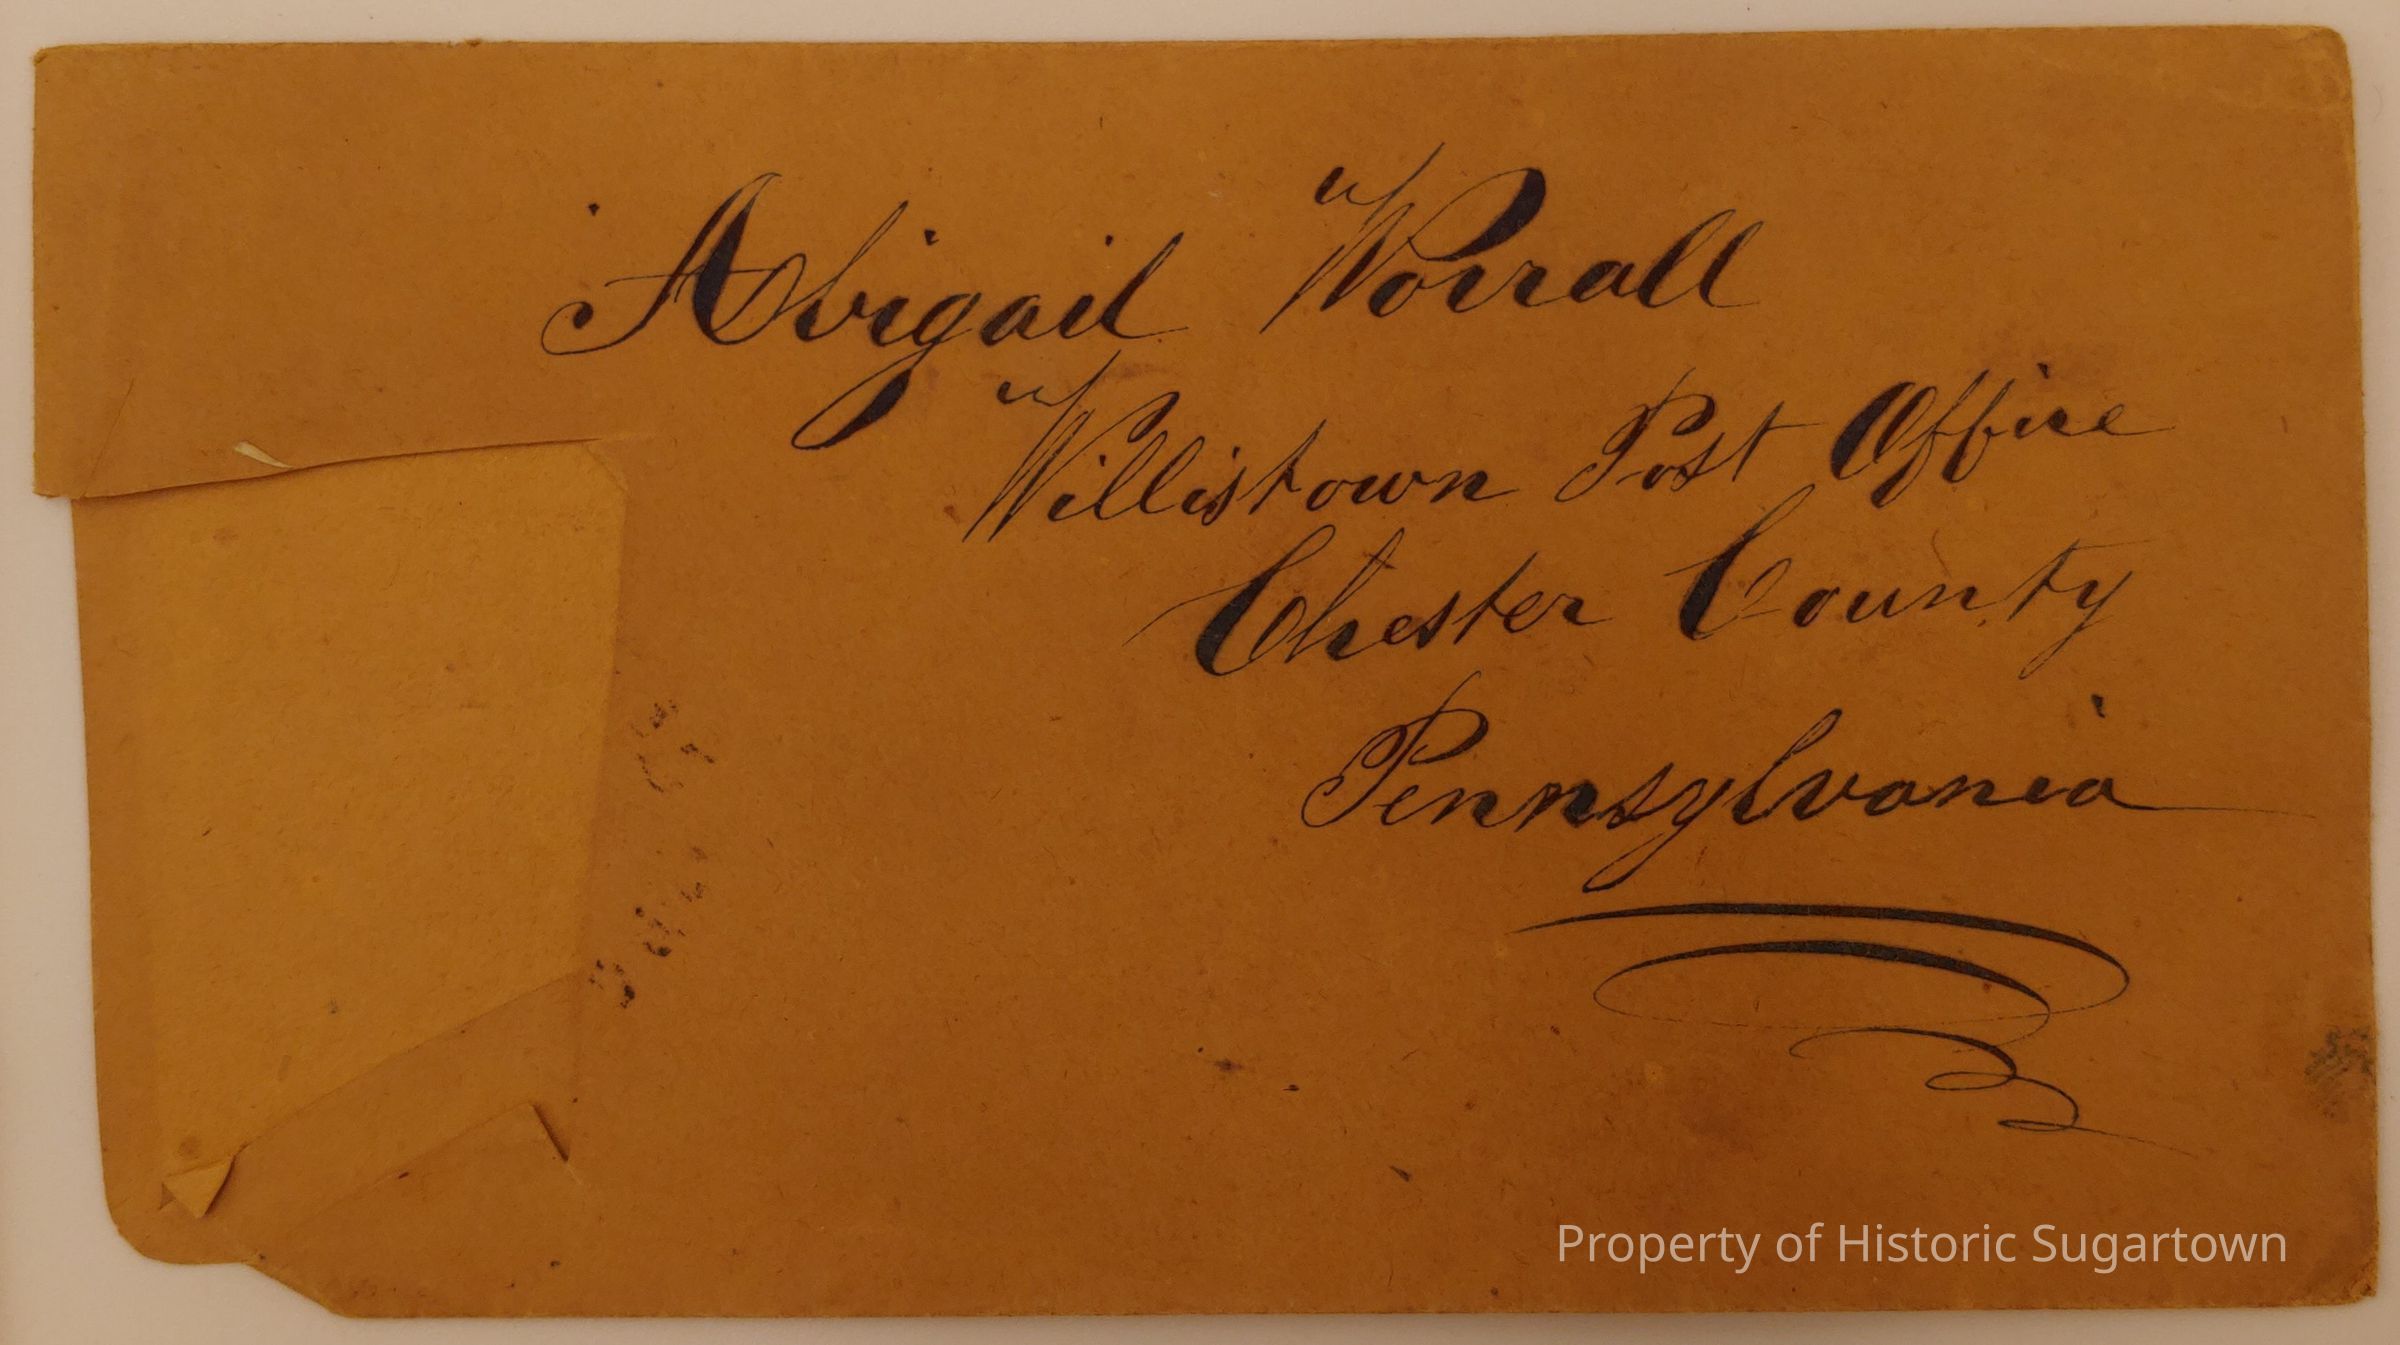 Abigail Worrall
Willistown Post Office
Chester County
Pennsylvania
Property of Historic Sugartown